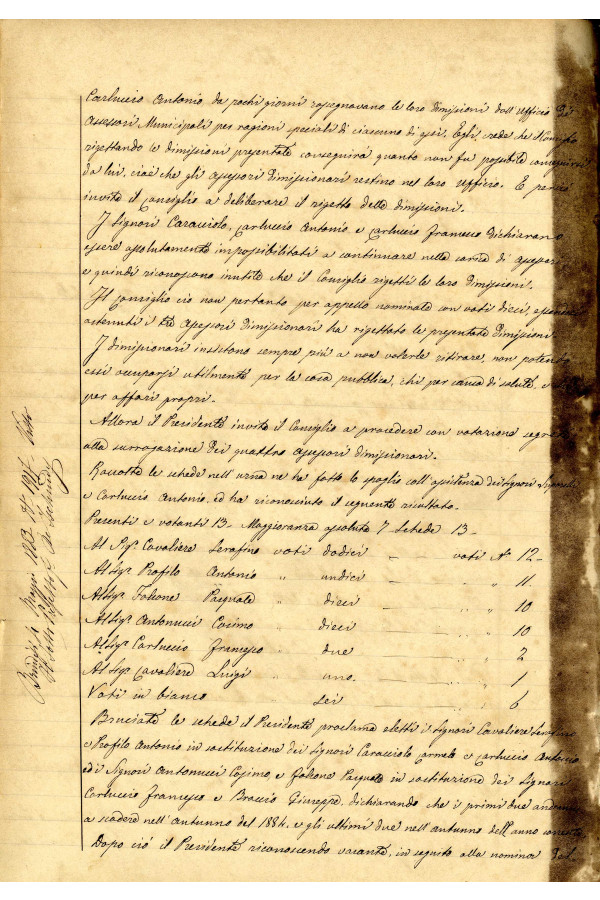 Carluccio Antonio da pochi giorni rassegnavano le loro dimissioni dall'Ufficio di
Assessori Municipali per ragioni speciali di ciascuno di essi. Egli, crede che il Consiglio
rigettando le dimissioni presentate conseguirà quanto non fu possibile conseguirsi
da lui, cioè che gli assessori dimissionari restino nel loro Ufficio. E perciò
invita il Consiglio a deliberare il rigetto delle dimissioni.
I Signori Caracciolo, Carluccio Antonio e Carluccio Francesco dichiarano
essere assolutamente impossibilitati a continuare nella carica di assessore
e quindi riconoscono inutile che il Consiglio rigetti le loro dimissioni.
Il Consiglio ciò non pertanto per appello nominale con voti dieci, essendosi
astenuti i tre Assessori dimissionari ha rigettato le presentate dimissioni.
I dimissionari insistono sempre più a non volerle ritirare, non potendo
essi occuparsi utilmente per la cosa pubblica, chi per causa di salute, e chi
per affari propri.
Allora il Presidente invita il Consiglio a procedere con votazione segreta
alla surrogazione dei quattro assessori dimissionari.
Raccolte le schede nell'urna ne ha fatto lo spoglio coll'assistenza dei Signori
e Carluccio Antonio, ed ha riconosciuto il seguente risultato.
Presenti e votanti 13 - Maggioranza assoluta 7 Schede 13 -
Al Sigr. Cavaliere Serafino voti dodici — voti No 12 -
Al Sigr. Profilo Antonio " undici — " " 11
Al Sigr. Falcone Pasquale " dieci — " " 10
Al Sigr. Antonucci Cosimo " dieci — " " 10
Al Sigr. Carluccio Francesco " due — " " 2
Al Sigr. Cavaliere Luigi " uno. — " " 1
Voti in bianco sei " " 6
Bruciate le schede il Presidente proclama eletti i Signori Cavaliere Serafino
e Profilo Antonio in sostituzione dei Signori Caracciolo Carmelo e Carluccio Antonio
ed i Signori Antonucci Cosimo e Falcone Pasquale in sostituzione dei Signori
Carluccio Francesco e Braccio Giuseppe, dichiarando che i primi due andranno
a scadere nell'autunno del 1884, e gli ultimi due nell'autunno dell'anno corrente.
Dopo ciò il Presidente riconoscendo vacante, in seguito alla nomina del
Brindisi 4 Maggio 1883 No 1917
Il Sotto Prefetto